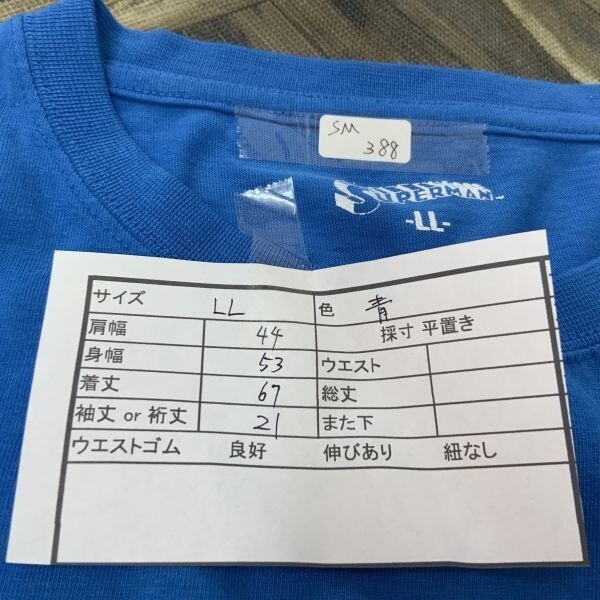 SM
388
SUPERMAN
-LL-
サイズ LL 色 青
肩幅 44 採寸 平置き
身幅 53 ウエスト
着丈 67 総丈
袖丈 or 裄丈 21 また下
ウエストゴム 良好 伸びあり 紐なし